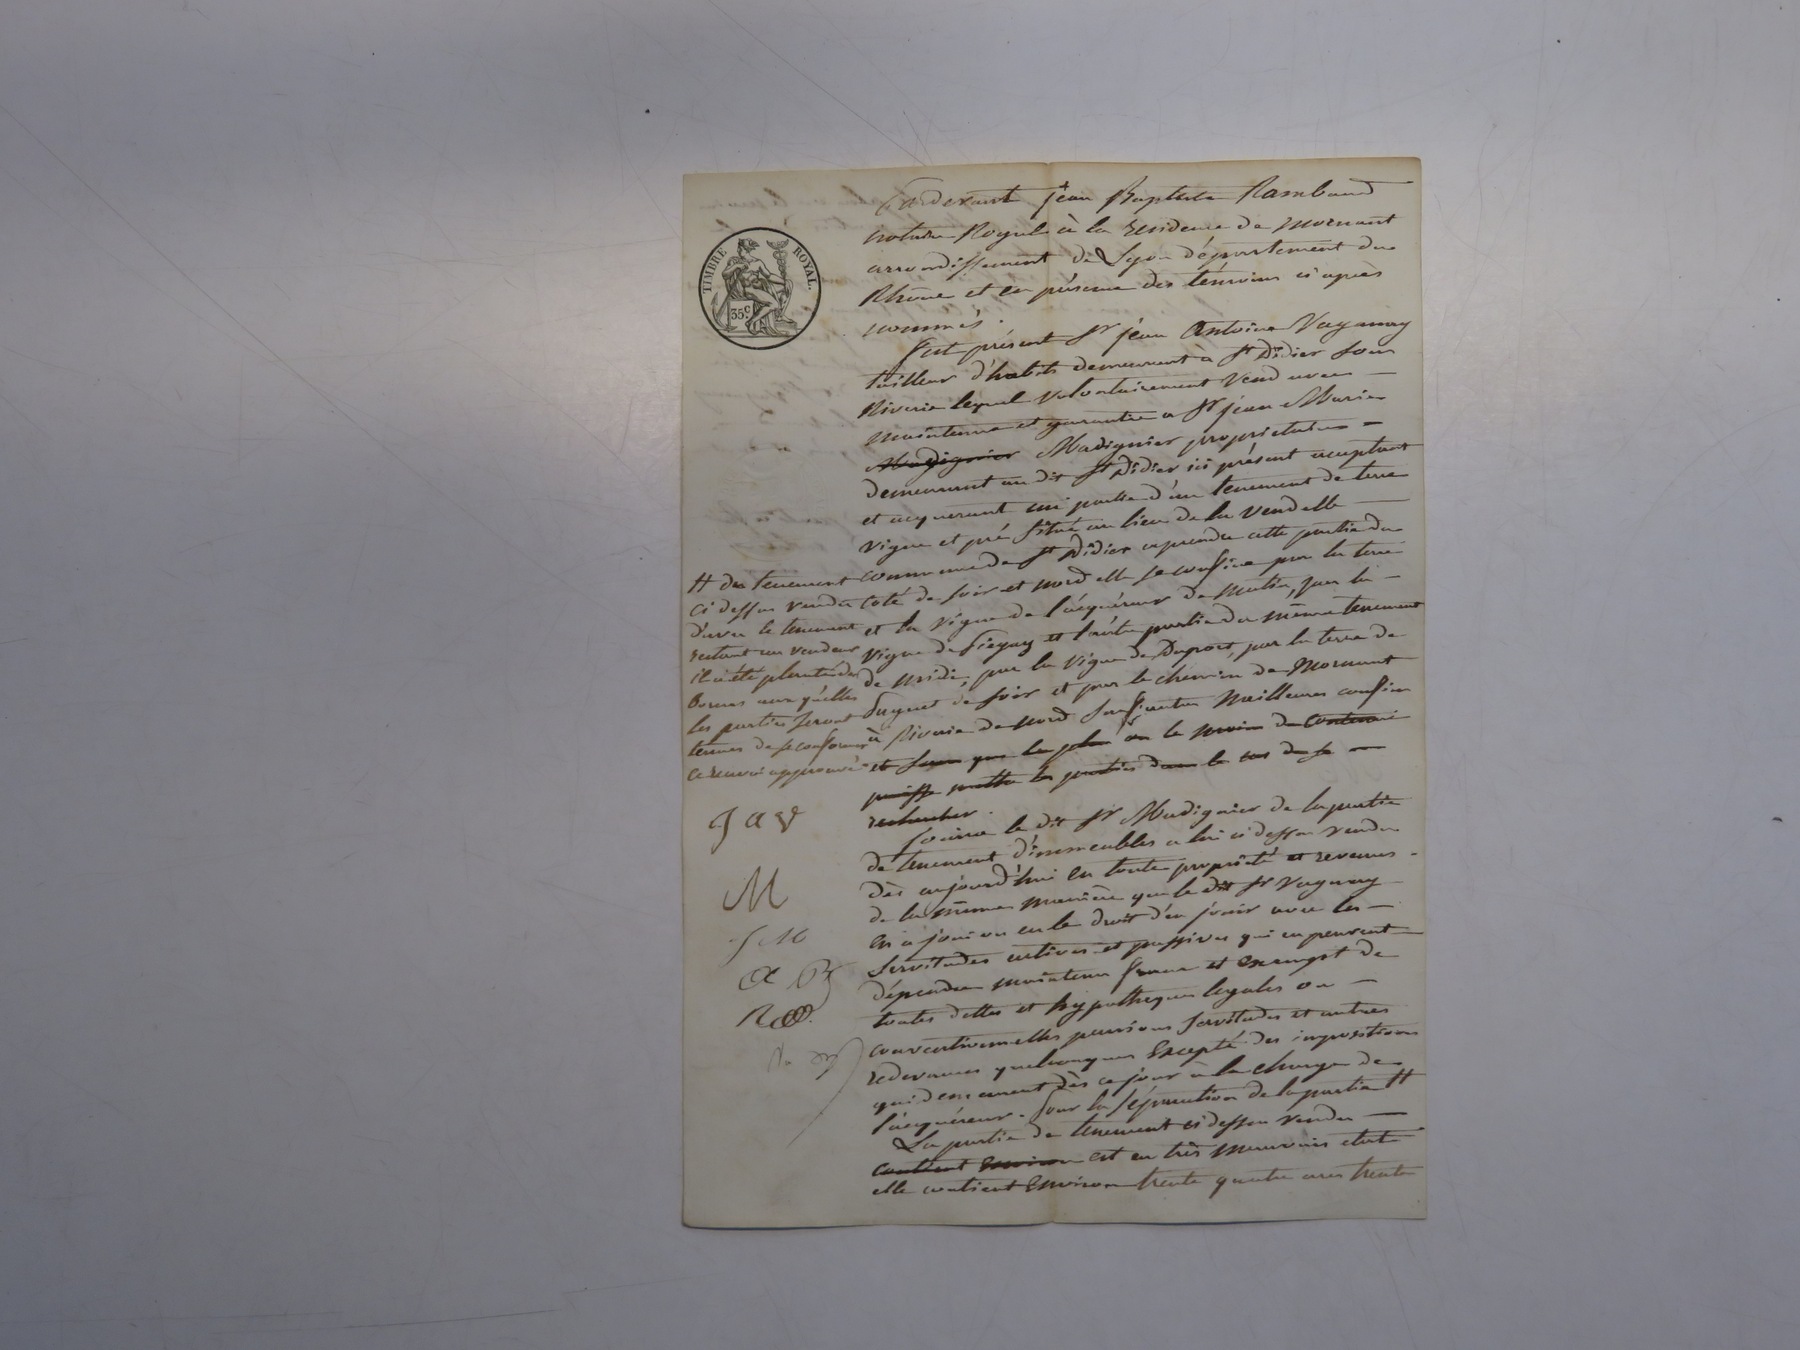 TIMBRE ROYAL.
35c
Pardevant jean Baptiste Rambaud
notaire Royal à la residence de mornant
arrondissement de Lyon département du
Rhône et en présence des témoins ci après
nommés.
fut présent Sr jean Antoine Vaganay
tailleur d'habits demeurant à St Didier sous
Riverie lequel volontairement vend avec
maintenue et garantie a Sr jean Marie
Madignier Madignier proprietaire
demeurant au dit St Didier ici présent acceptant
et acquerant une partie d'un tenement de terre
vigne et pré situé au lieu de la Vendelle
commune de St Didier a prendre cette partie du
coté de soir et nord elle se confine par la terre
et la vigne de l'acquéreur de matin, par la
vigne de et l'autre partie du même tenement
de midi, par la vigne de Dupost, par la terre de
de soir et par le chemin de Mornant
à Riverie de nord sauf autres meilleurs confins
et sans que le plus ou le moins de contenue
puisse mettre les parties dans le cas de se
rechercher.
Jouira le dit Sr Madignier de la partie
de tenement d'immeubles a lui ci dessus vendu
dès aujourd'hui en toute propriété et revenus
de la même manière que le dit Sr Vaganay
en a joui ou eu le droit d'en jouir avec les
servitudes actives et passives qui en peuvent
dépendre maintenu franc et exempt de
toutes dettes et hypotheques legales ou
conventionnelles pensions servitudes et autres
redevances quelconques Excepté des impositions
qui demeurent dès ce jour à la charge de
l'acquéreur. Pour la séparation de la partie #
La partie de tenement ci dessus vendu
contient Environ est en très mauvais etat
elle contient Environ trente quatre ares trente
# du tenement
ci dessus vendu
d'avec le tenement
restant au vendeur
il a été planté des
bornes aux quelles
les parties seront
tenues de se conformer
ce renvoi approuvé
J a V
M
J M
R